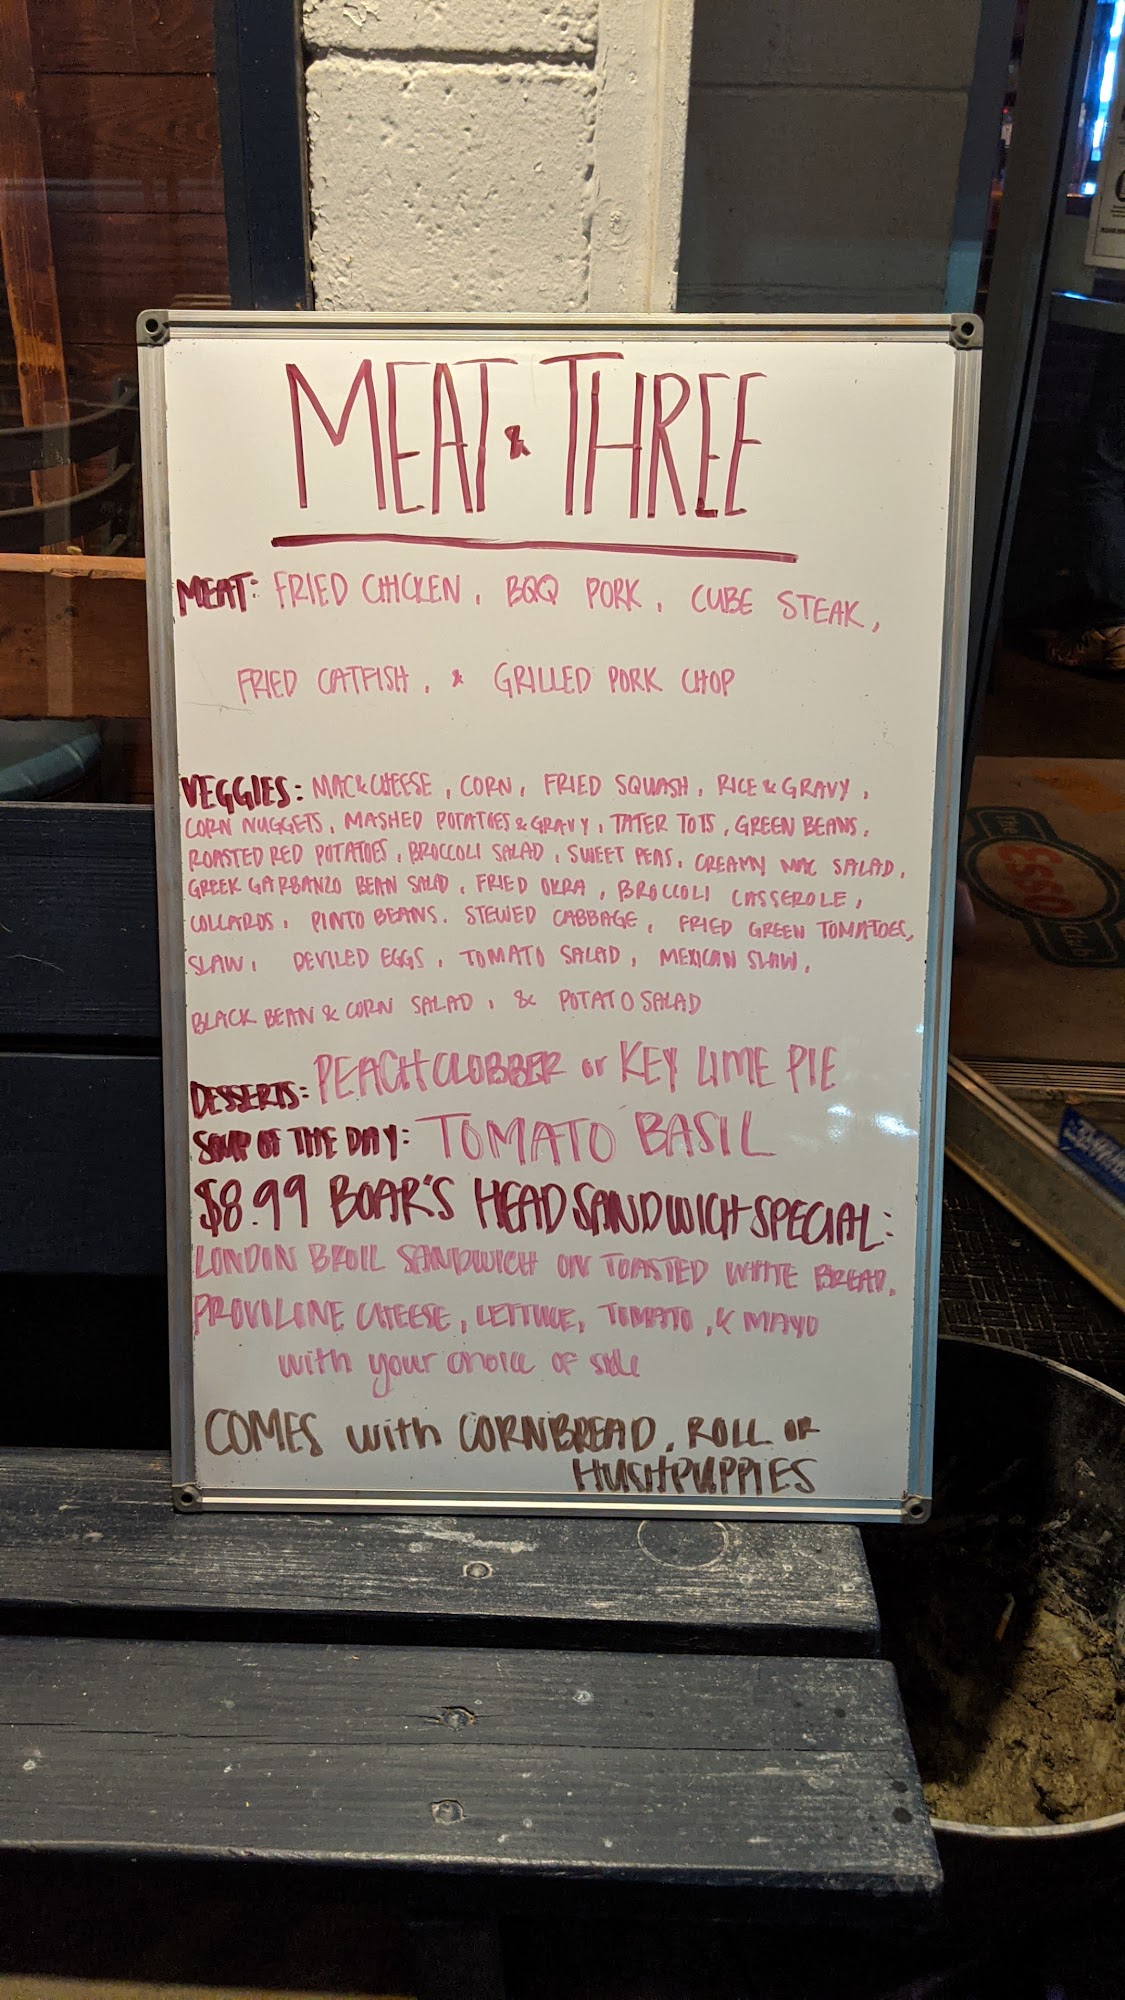 MEAT & THREE
MEAT: FRIED CHICKEN, BQQ PORK, CUBE STEAK,
FRIED CATFISH, & GRILLED PORK CHOP
VEGGIES: MAC & CHEESE, CORN, FRIED SQUASH, RICE & GRAVY,
CORN NUGGETS, MASHED POTATOES & GRAVY, TATER TOTS, GREEN BEANS,
ROASTED RED POTATOES, BROCCOLI SALAD, SWEET PEAS, CREAMY MAC SALAD,
GREEK GARBANZO BEAN SALAD, FRIED OKRA, BROCCOLI CASSEROLE,
COLLARDS, PINTO BEANS, STEWED CABBAGE, FRIED GREEN TOMATOES,
SLAW, DEVILED EGGS, TOMATO SALAD, MEXICAN SLAW,
BLACK BEAN & CORN SALAD, & POTATO SALAD
DESSERTS: PEACH CLOBBER or KEY LIME PIE
SOUP OF THE DAY: TOMATO BASIL
$8.99 BOAR'S HEAD SANDWICH SPECIAL:
LONDON BROIL SANDWICH ON TOASTED WHITE BREAD,
PROVILONE CHEESE, LETTUCE, TOMATO, & MAYO
with your choice of side
COMES with CORNBREAD, ROLL OR
HUSHPUPPIES
The
ESSO
Club